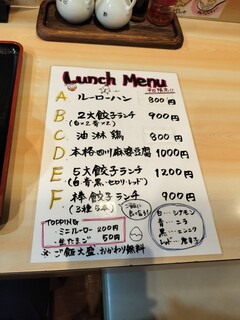 Lunch Menu
平日限定!!
A ルーローハン 800円
B 2大餃子ランチ 900円
(白×2 青×2)
C 油淋鶏 800円
D 本格四川麻婆豆腐 1000円
E 5大餃子ランチ 1200円
(白・青・黒・セロリ・レッド)
F 棒餃子ランチ 900円
(3種5本)
TOPPING
・ミニルーロー 200円
・生たまご 50円
白…シナモン
青…ニラ
黒…ニンニク
レッド…唐辛子
※ご飯大盛、おかわり無料